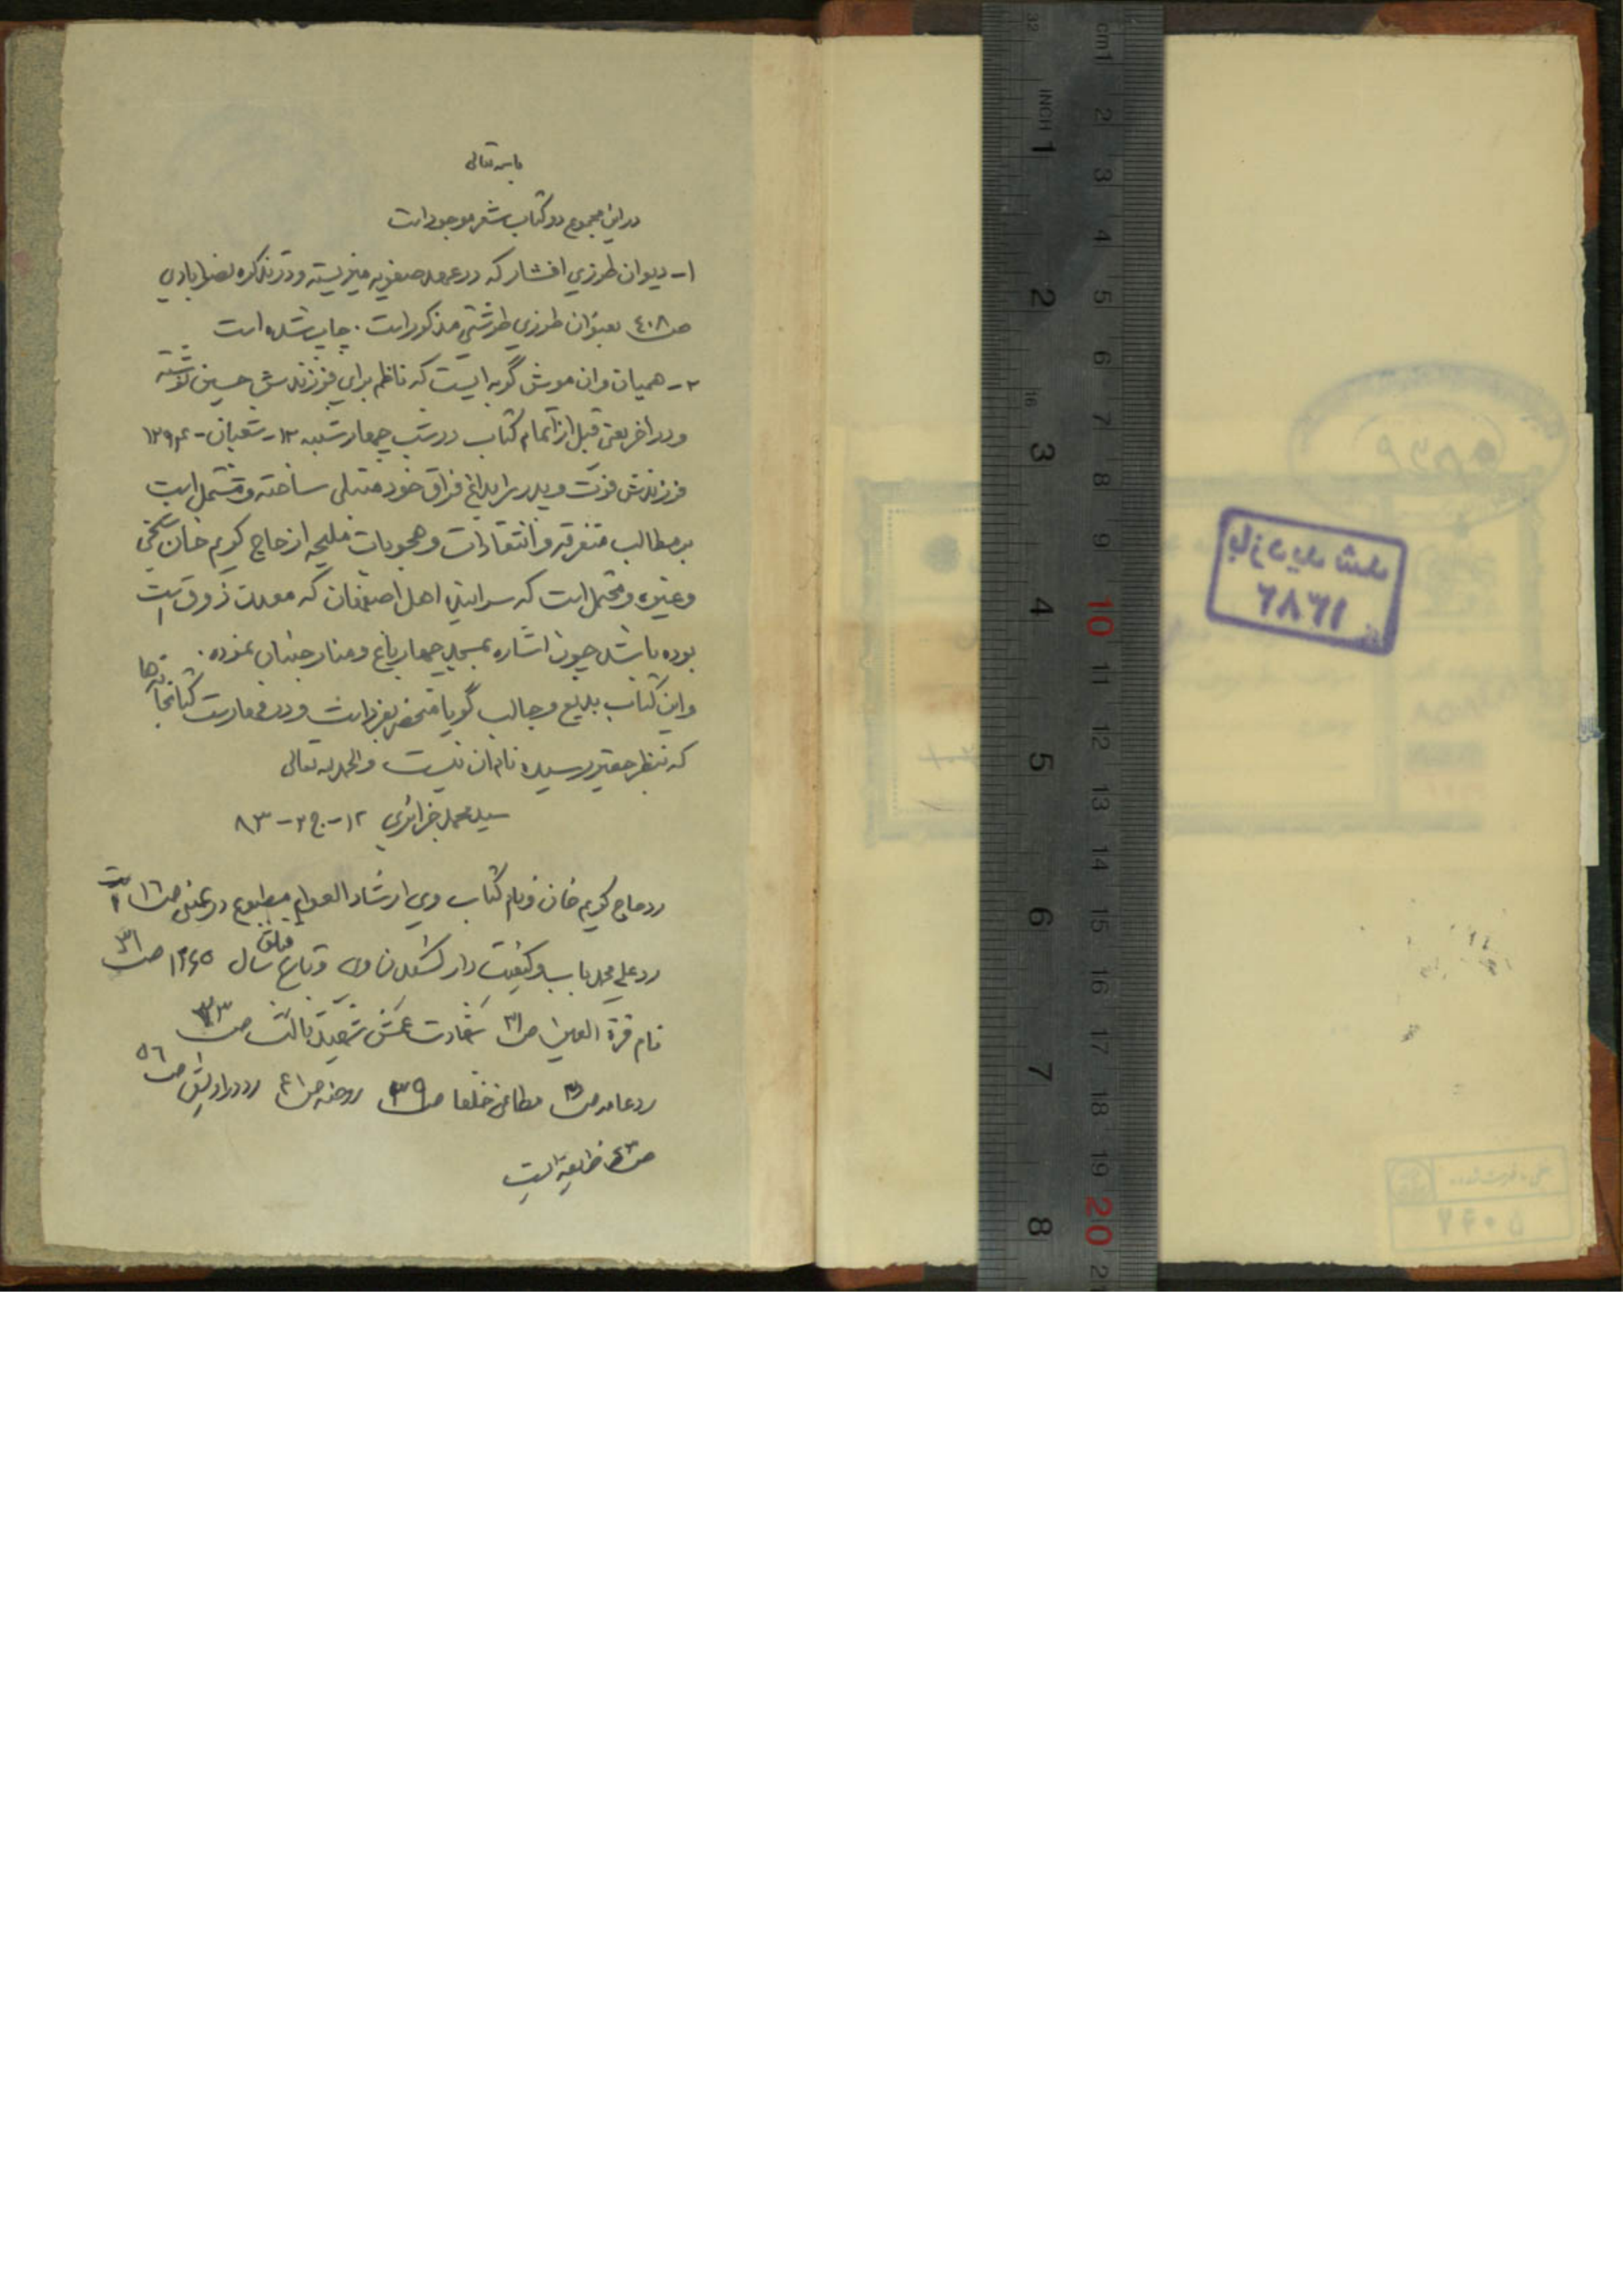 باسمه تعالی
در این مجموع دو کتاب شعر موجود است
۱- دیوان طرزی افشار که در عهد صفویه میزیسته و در تذکره نصرابادی
ص ۴۰۸ بعنوان طرزی طرشتی مذکور است . چاپ شده است
۲- همیان و ان موش گربه ایست که ناظم برای فرزندش حسین نوشته
و در اخر یعنی قبل از اتمام کتاب در شب چهارشنبه ۱۲- شعبان -
فرزندش فوت و پدر را بداغ فراق خود مبتلی ساخته و مشتمل است
بر مطالب متفرقه و انتقادات و هجویات ملیحه از حاج کریم خان شیخی
و غیره و محتمل است که سراینده اهل اصفهان که معدن ذوق است
بوده باشد چون اشاره بمسجد چهارباغ و منار جنبان نموده .
و این کتاب بدیع و جالب گویا منحصر بفرد است و در فهارست کتابخانه ها
که بنظر حقیر رسیده نام ان نیست والحمد لله تعالی
سید محمد جزائری ۱۲- ج ۲- ۸۳
رد حاج کریم خان و نام کتاب وی ارشاد العوام مطبوع در بمبئی ص ۱۶ است
رد علی محمد باب و کیفیت دار کشیدن وی سال ۱۲۶۵ ص ۳۱
نام قرة العین ص ۳۱ شهادت ثالث ص ۳۳
رد عامه ص مطاعن خلفا ص ۳۹ روضه ص ۴۱ رد دراویش ص ۵۶
ص
cm 1 2 3 4 5 6 7 8 9 10 11 12 13 14 15 16 17 18 19 20
32
INCH 1 2 3 4 5 6 7 8
16
بازدید شد